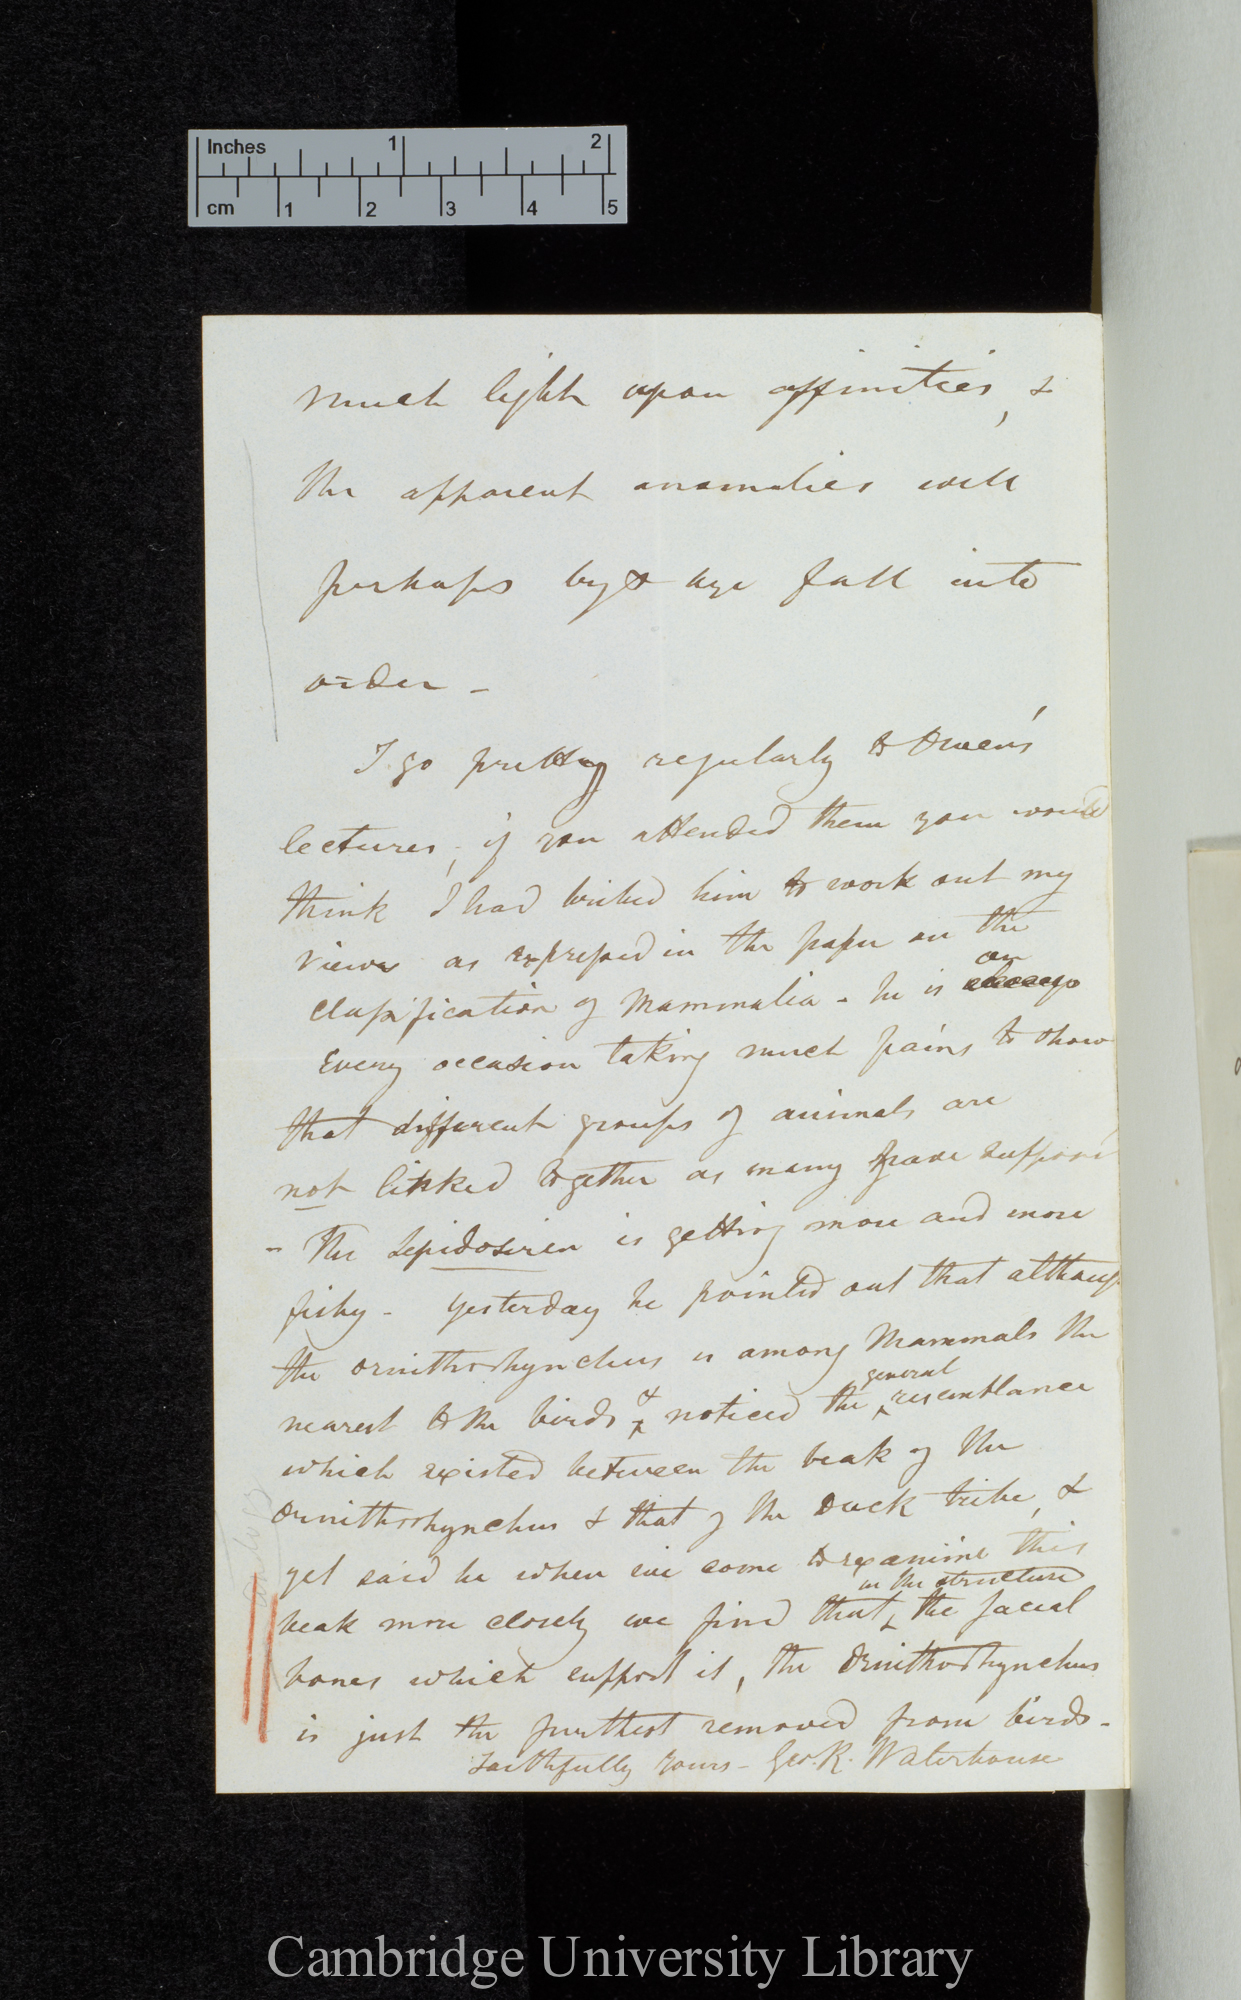 Inches 1 2
cm 1 2 3 4 5
much light upon affinities, &
the apparent anomalies will
perhaps by & bye fall into
order –
I go pretty regularly to Owen's
lectures, if you attended them you would
think I had bribed him to work out my
views as expressed in the paper on the
on
classification of Mammalia – he is
every occasion taking much pains to show
that different groups of animals are
not linked together as many have suppos'd
– The Lepidosiren is getting more and more
fishy – yesterday he pointed out that although
the ornithorhynchus is among Mammals the
general
nearest to the birds & noticed the resemblance
which existed between the beak of the
Ornithorhynchus & that of the Duck tribe, &
yet said he when we come to examine this
in the structure
beak more closely we find that the facial
bones which support it, the Ornithorhynchus
is just the furthest removed from birds –
Faithfully yours – Geo. R. Waterhouse
Cambridge University Library